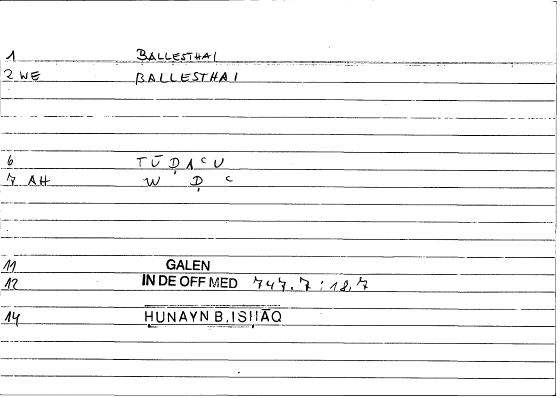 1 BALLESTHAI
2 WE BALLESTHAI
6 TŪḌAʿU
7 AH W Ḍ ʿ
11 GALEN
12 IN DE OFF MED 747.7 : 18,7
14 HUNAYN B. ISḤĀQ